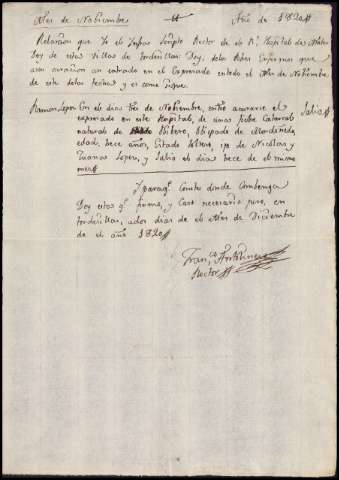 Mes de Nobiembre Año de 1820
Relacion que Yo el Infras Rector de el Rl Hospital de Mater
Doy de esta Villa de Tordesillas; Doy, delos Pobres Enfermos que
asu curacion an entrado en el Expresado entodo el Mes de Nobiembre
de este dela fecha; y es como sigue
Ramon Lopez En el dia tres de Nobiembre, entro acurarse el Salio
expresado en este Hospital, de una fiebre Catarral
natural de Obispado de Mondoñedo,
edad, años, Estado soltero, ijo de Nicolas, y
Juana Lopez, y Salio el dia trece de el mismo
mes
Y paraq. Conste donde Combenga
Doy esta q. firmo, y Caso necesario juro, en
Tordesillas, ados dias de el Mes de Diciembre
de el año 1820
Franco
Rector